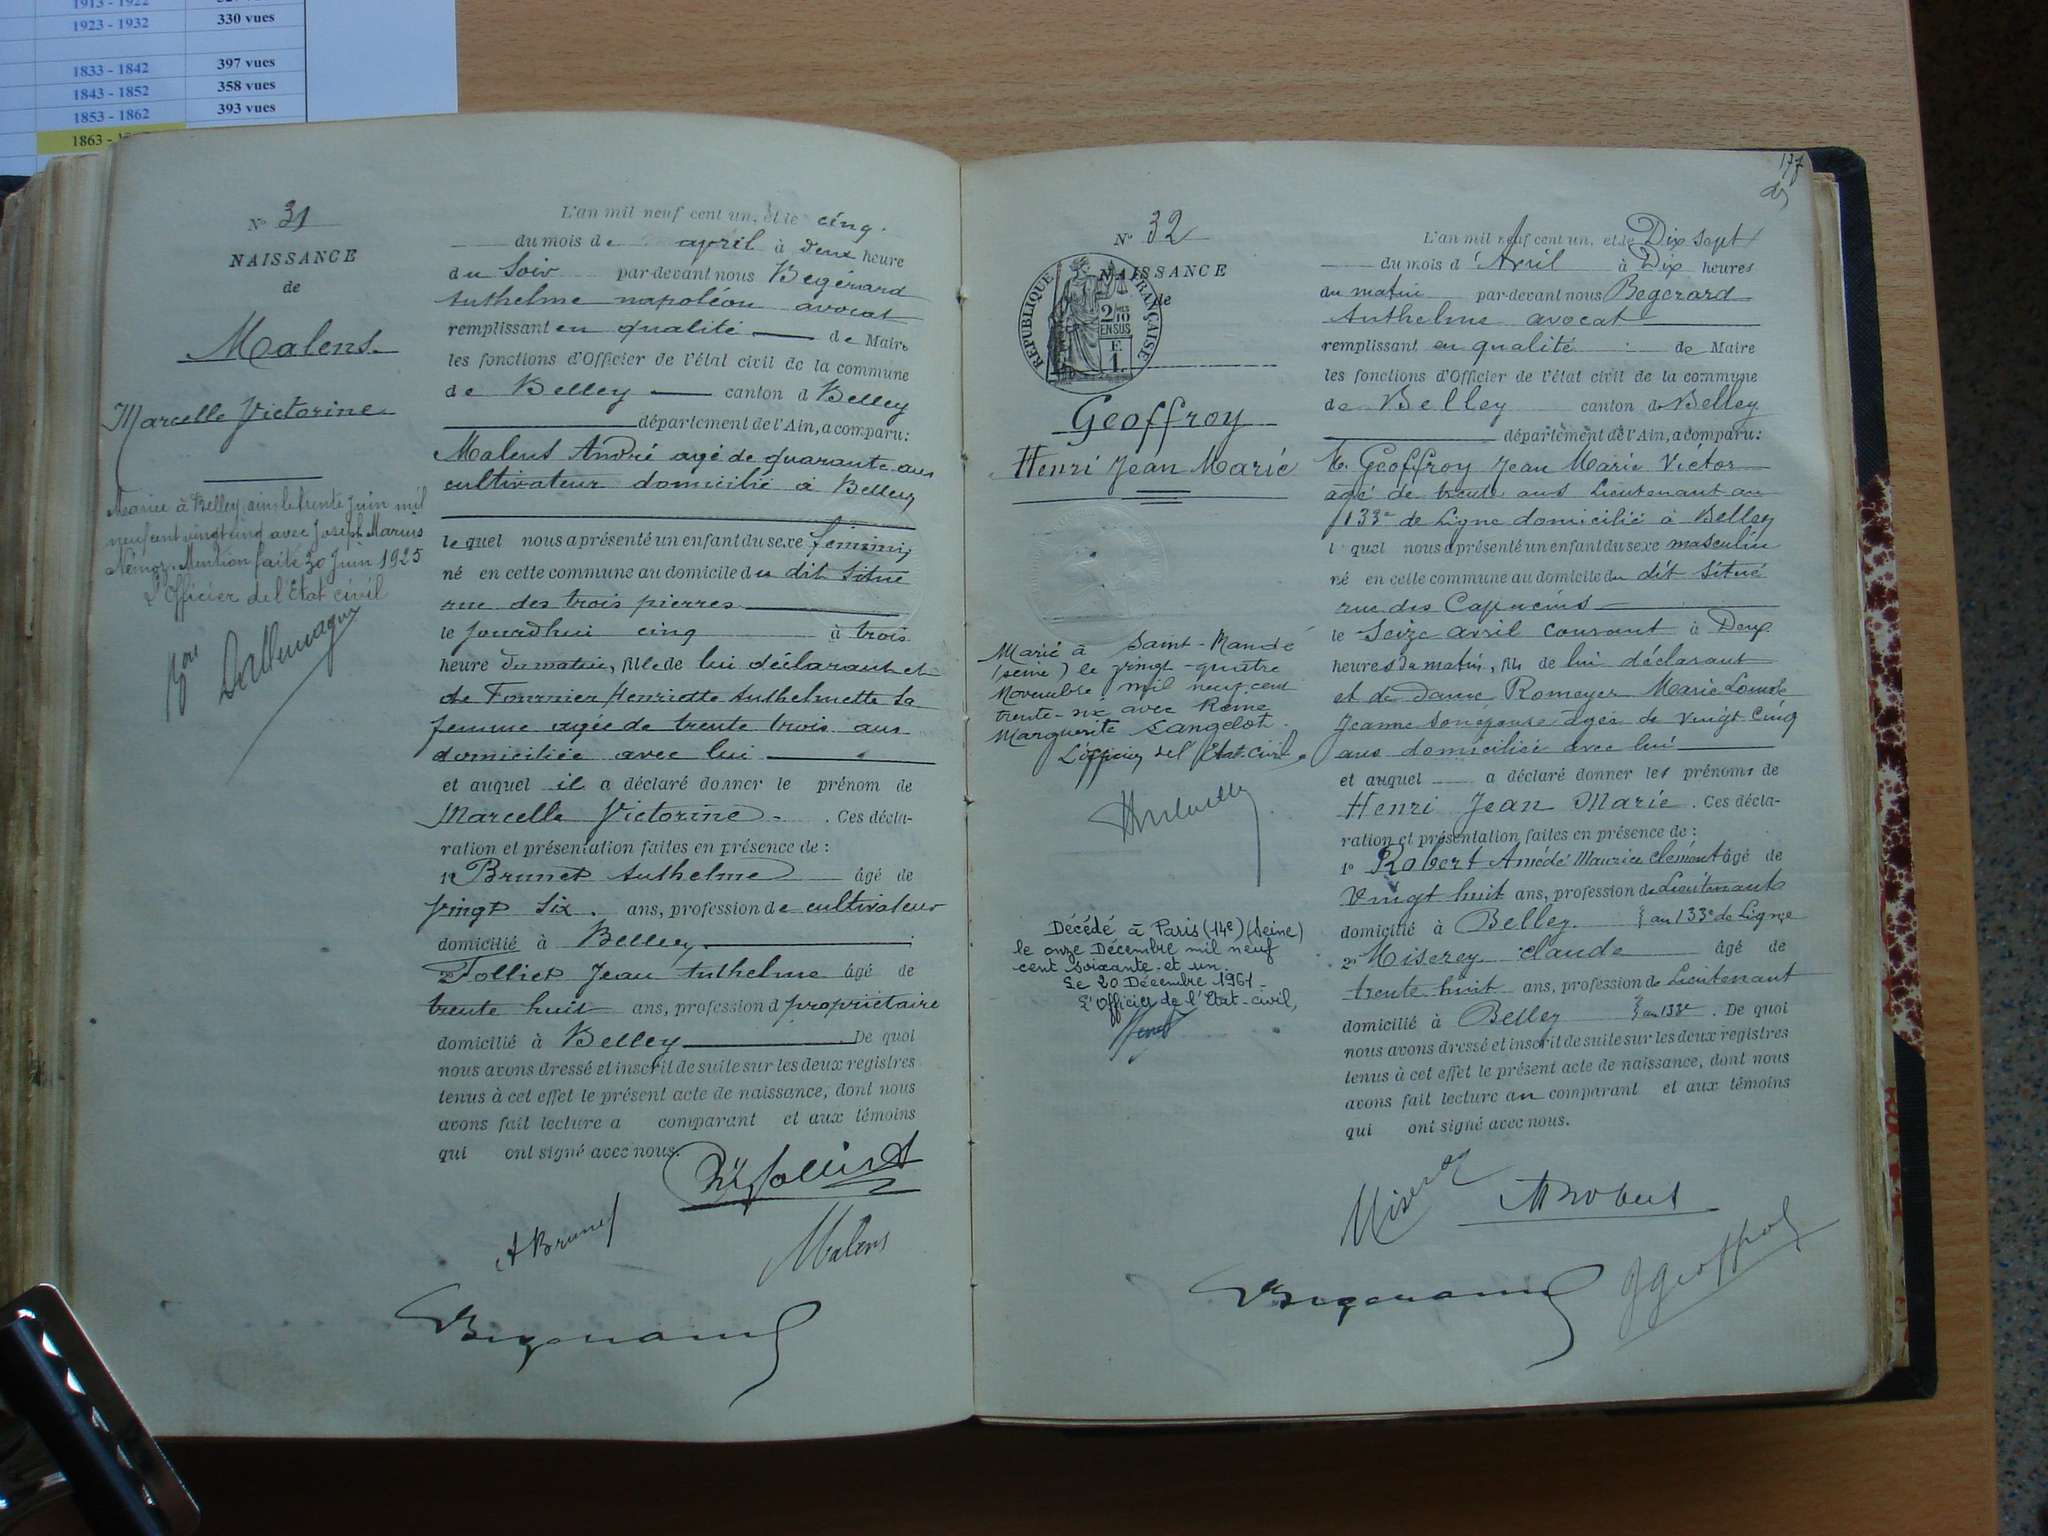 1913 - 1922
1923 - 1932 330 vues
1833 - 1842 397 vues
1843 - 1852 358 vues
1853 - 1862 393 vues
1863 -
N° 31
NAISSANCE
de
Malens
Marcelle Victorine
Mariée à Belley, ain le trente Juin mil
neuf cent vingt cinq avec Joseph Marius
Némoz. Mention faite 30 Juin 1925
L'Officier de l'Etat civil
Dallemagne
L'an mil neuf cent un, et le cinq.
du mois de april à deux heure
du Soir par-devant nous Begérard
Anthelme napoléon avocat
remplissant en qualité de Maire
les fonctions d'Officier de l'état civil de la commune
de Belley canton d Belley
département de l'Ain, a comparu:
Malens André agé de quarante ans
cultivateur domicilié à Belley
le quel nous a présenté un enfant du sexe féminin
né en cette commune au domicile du dit Situé
rue des trois pierres
le jourdhui cinq à trois
heure du matin, fille de lui déclarant et
de Fournier Henriette Anthelmette sa
femme agée de trente trois ans
domiciliée avec lui
et auquel il a déclaré donner le prénom de
Marcelle Victorine. Ces décla-
ration et présentation faites en présence de :
1° Brunet Anthelme âgé de
vingt six. ans, profession de cultivateur
domicilié à Belley
2° Folliet Jean Anthelme âgé de
trente huit ans, profession d propriétaire
domicilié à Belley De quoi
nous avons dressé et inscrit de suite sur les deux registres
tenus à cet effet le présent acte de naissance, dont nous
avons fait lecture a comparant et aux témoins
qui ont signé avec nous.
Folliet
A Brunet
Malens
Begerard
177
N° 32
NAISSANCE
de
RÉPUBLIQUE FRANÇAISE
2/10
EN SUS
F
1.
Geoffroy
Henri Jean Marie
Marié à Saint-Mandé
(seine) le vingt-quatre
Novembre mil neuf cent
trente-six avec Reine
Marguerite Sangelot.
L'officier de l'Etat-civil
Décédé à Paris (14e) (Seine)
le onze Décembre mil neuf
cent soixante et un
Le 20 Décembre 1961-
L'Officier de l'Etat-civil,
L'an mil neuf cent un, et le Dix sept
du mois d'Avril à Dix heures
du matin par-devant nous Begerard
Anthelme avocat
remplissant en qualité de Maire
les fonctions d'Officier de l'état civil de la commune
de Belley canton de Belley
département de l'Ain, a comparu:
Geoffroy Jean Marie Victor
agé de trente ans Lieutenant au
133e de Ligne domicilié à Belley
l quel nous a présenté un enfant du sexe masculin
né en cette commune au domicile du dit situé
rue des Capucins
le Seize avril courant à Deux
heures du matin, fils de lui déclarant
et de dame Romeyer Marie Louise
Jeanne son épouse agée de vingt cinq
ans domiciliée avec lui
et auquel a déclaré donner les prénoms de
Henri Jean Marie. Ces décla-
ration et présentation faites en présence de :
1° Robert Amédé Maurice Clément âgé de
Vingt huit ans, profession de Lieutenant
domicilié à Belley. au 133e de Ligne
2° Miserey Claude âgé de
trente huit ans, profession de Lieutenant
domicilié à Belley au 133e. De quoi
nous avons dressé et inscrit de suite sur les deux registres
tenus à cet effet le présent acte de naissance, dont nous
avons fait lecture au comparant et aux témoins
qui ont signé avec nous.
Miserey
Robert
Begerard
Geoffroy